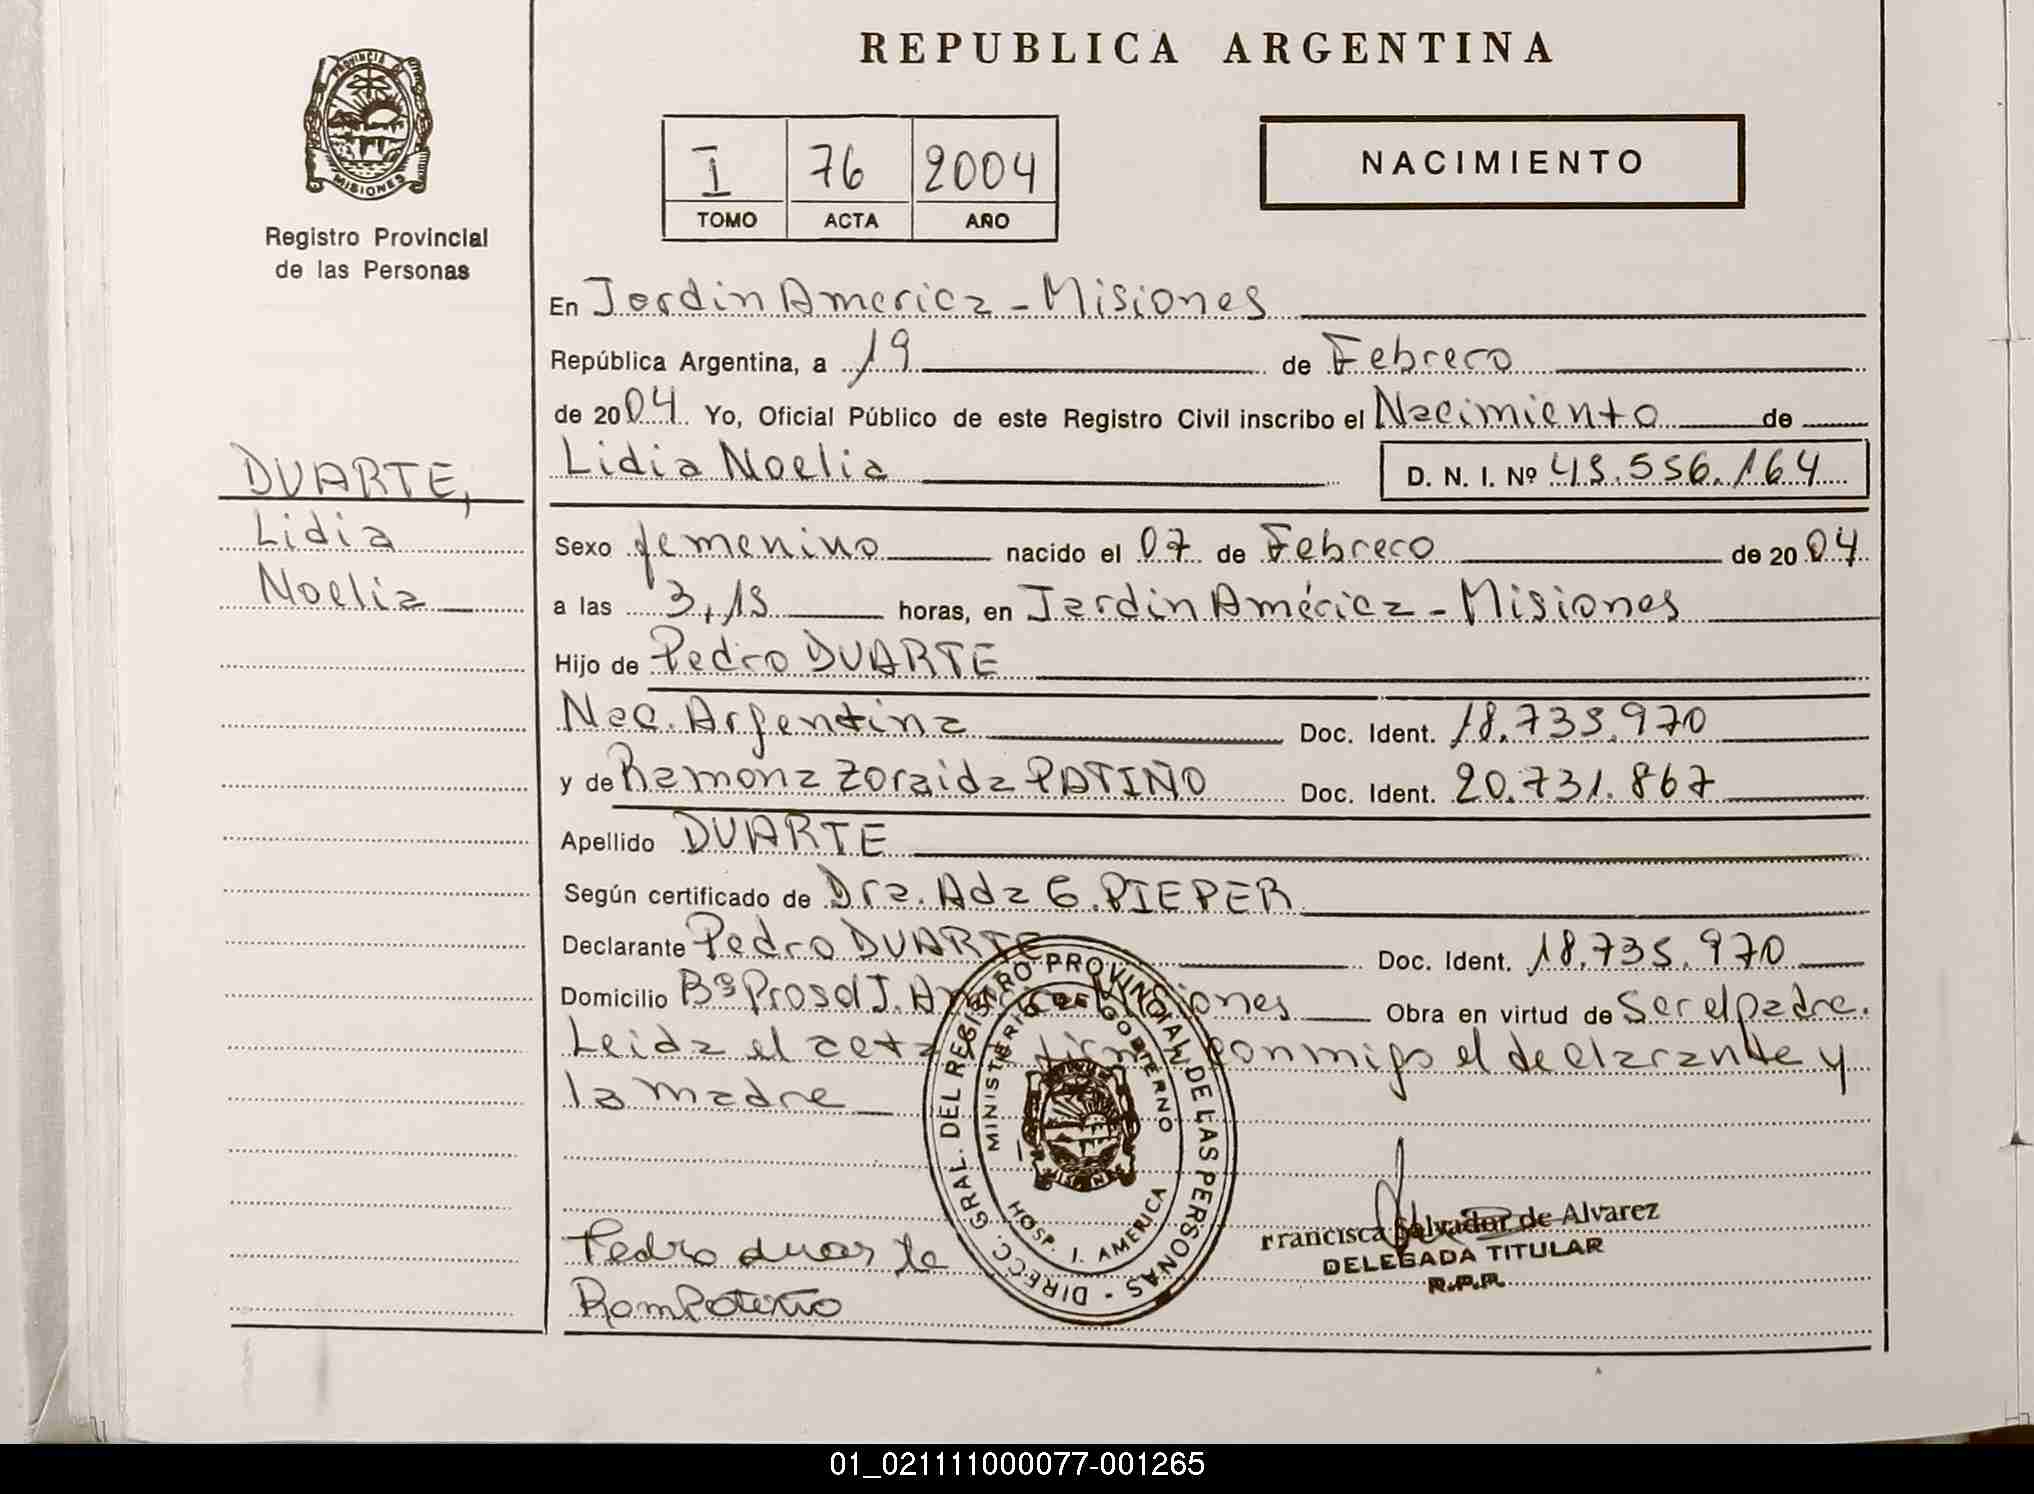 REPUBLICA ARGENTINA
PROVINCIA DE
MISIONES
Registro Provincial
de las Personas
I 76 2004
TOMO ACTA AÑO
NACIMIENTO
En Jardin America - Misiones
República Argentina, a 19 de Febrero
de 2004 Yo, Oficial Público de este Registro Civil inscribo el Nacimiento de
Lidia Noelia D. N. I. Nº 45.556.164
DUARTE,
Lidia
Noelia
Sexo femenino nacido el 07 de Febrero de 2004
a las 3,15 horas, en Jardin América - Misiones
Hijo de Pedro DUARTE
Nac. Argentina Doc. Ident. 18.735.970
y de Ramona Zoraida PATIÑO Doc. Ident. 20.731.867
Apellido DUARTE
Según certificado de Dra. Ada G. PIEPER
Declarante Pedro DUARTE Doc. Ident. 18.735.970
Domicilio Bº Prosol J. América Misiones Obra en virtud de Ser el padre.
Leida el acta firma conmigo el declarante y
la madre
DIRECC. GRAL. DEL REGISTRO PROVINCIAL DE LAS PERSONAS
MINISTERIO DE GOBIERNO
HOSP. J. AMERICA
Pedro duarte
Ram Patiño
Francisca Salvador de Alvarez
DELEGADA TITULAR
R.P.P.
01_021111000077-001265